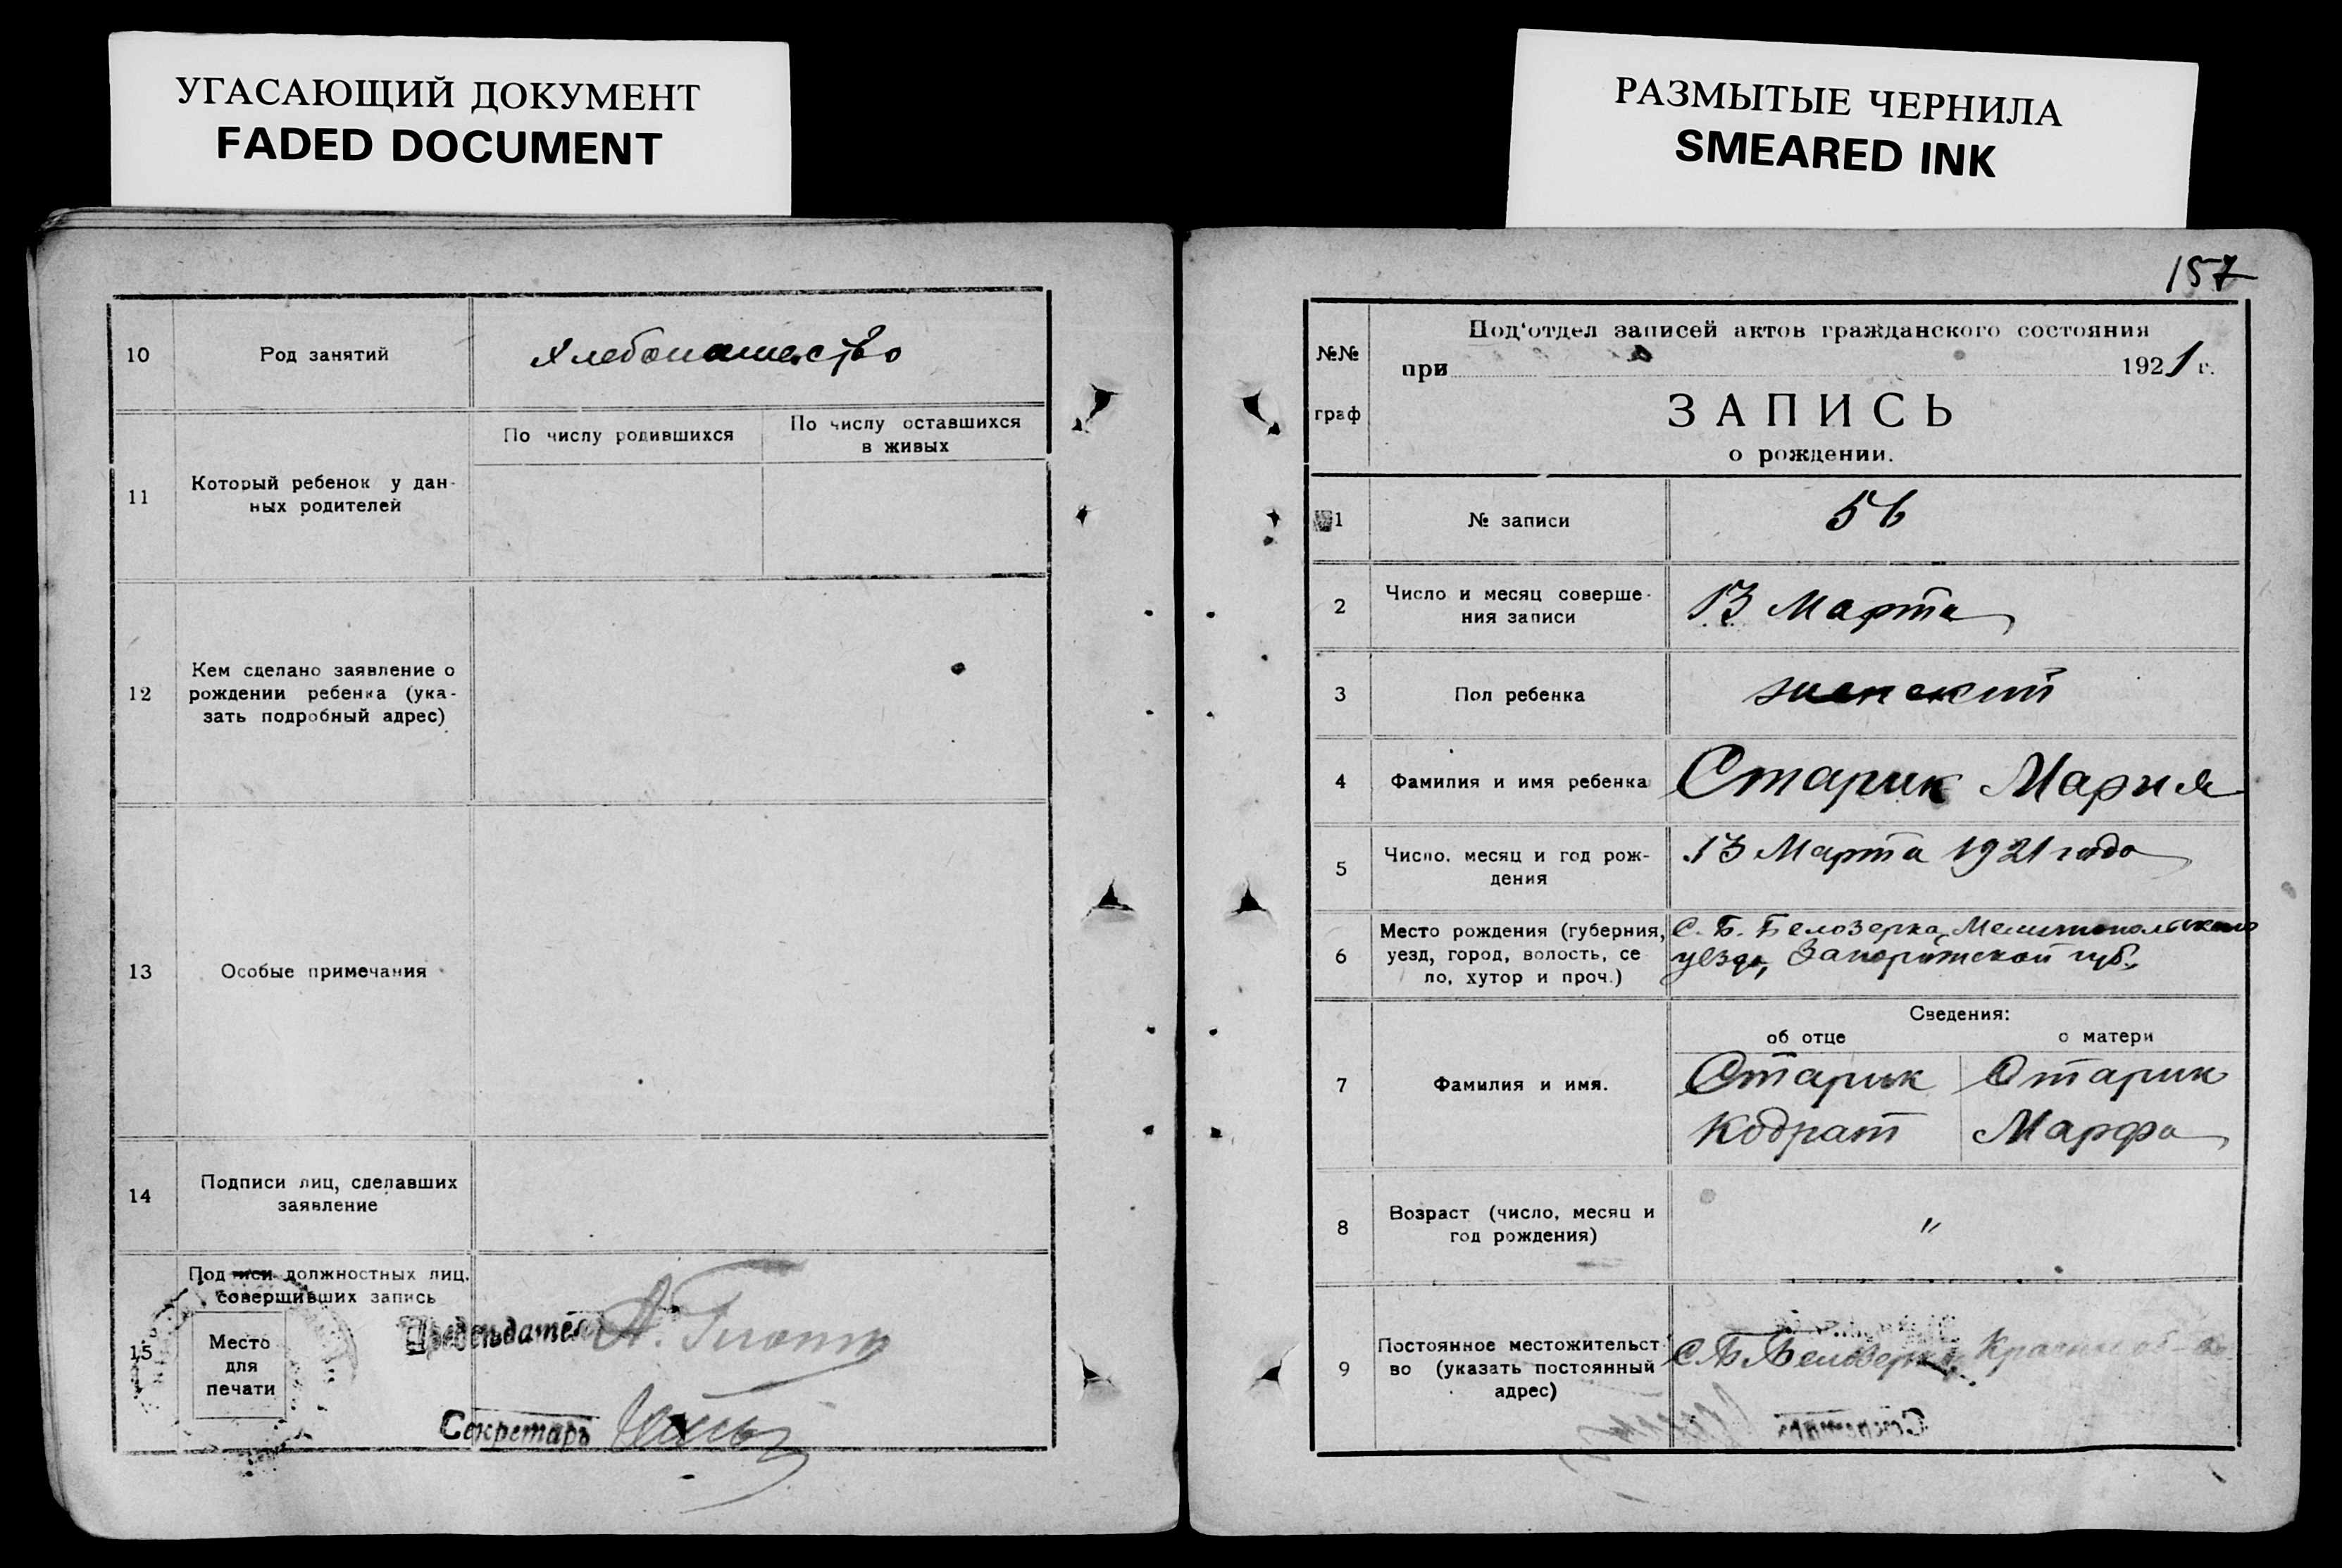 УГАСАЮЩИЙ ДОКУМЕНТ
FADED DOCUMENT
РАЗМЫТЫЕ ЧЕРНИЛА
SMEARED INK
10
Род занятий
Хлебопашество
11
Который ребенок у дан-
ных родителей
По числу родившихся
По числу оставшихся
в живых
12
Кем сделано заявление о
рождении ребенка (ука-
зать подробный адрес)
13
Особые примечания
14
Подписи лиц, сделавших
заявление
15
Подписи должностных лиц.
совершивших запись
Место
для
печати
Председатель А.
Секретарь
157
№№
граф
Под'отдел записей актов гражданского состояния
при 1921 г.
ЗАПИСЬ
о рождении.
1
№ записи
56
2
Число и месяц соверше-
ния записи
13 Марта
3
Пол ребенка
женский
4
Фамилия и имя ребенка
Старик Мария
5
Число, месяц и год рож-
дения
13 Марта 1921 года
6
Место рождения (губерния,
уезд, город, волость, се
ло, хутор и проч.)
С. Б. Белозерка, Мелитопольского
уезда, Запорожской губ.
Сведения:
об отце
о матери
7
Фамилия и имя.
Старик
Кодрат
Старик
Марфа
8
Возраст (число, месяц и
год рождения)
"
9
Постоянное местожительст-
во (указать постоянный
адрес)
С. Б. Белозерка